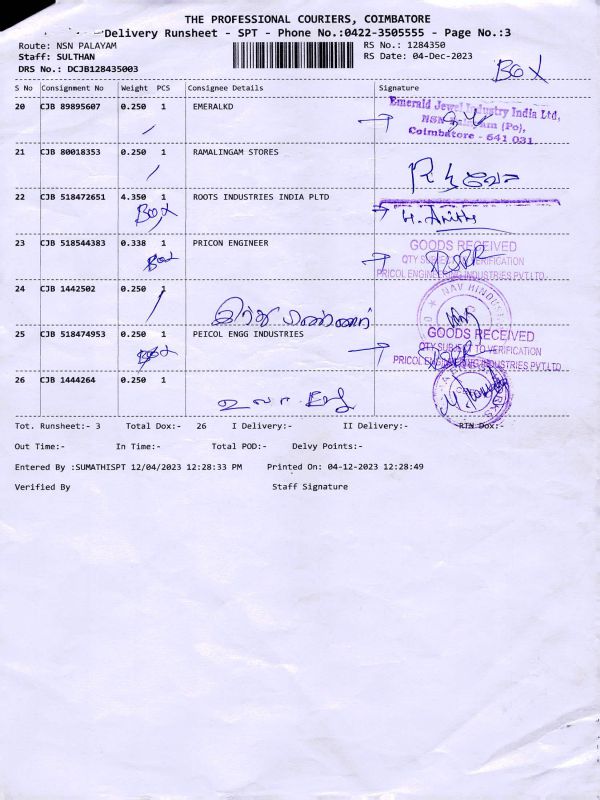 THE PROFESSIONAL COURIERS, COIMBATORE
Delivery Runsheet - SPT - Phone No.:0422-3505555 - Page No.:3
Route: NSN PALAYAM RS No.: 1284350
Staff: SULTHAN RS Date: 04-Dec-2023
DRS No.: DCJB128435003
Box
S No Consignment No Weight PCS Consignee Details Signature
20 CJB 89895607 0.250 1 EMERALKD
Emerald Jewel Industry India Ltd,
NSN (Po),
Coimbatore - 641 031
21 CJB 80018353 0.250 1 RAMALINGAM STORES
22 CJB 518472651 4.350 1 ROOTS INDUSTRIES INDIA PLTD
Box
23 CJB 518544383 0.338 1 PRICON ENGINEER
Box
GOODS RECEIVED
QTY SUBJECT VERIFICATION
PRICOL ENGINEERING INDUSTRIES PVT.LTD.
24 CJB 1442502 0.250 1
25 CJB 518474953 0.250 1 PEICOL ENGG INDUSTRIES
Box
GOODS RECEIVED
QTY SUBJECT TO VERIFICATION
PRICOL ENGINEERING INDUSTRIES PVT.LTD.
26 CJB 1444264 0.250 1
Tot. Runsheet:- 3 Total Dox:- 26 I Delivery:- II Delivery:- RTN Dox:-
Out Time:- In Time:- Total POD:- Delvy Points:-
Entered By :SUMATHISPT 12/04/2023 12:28:33 PM Printed On: 04-12-2023 12:28:49
Verified By Staff Signature